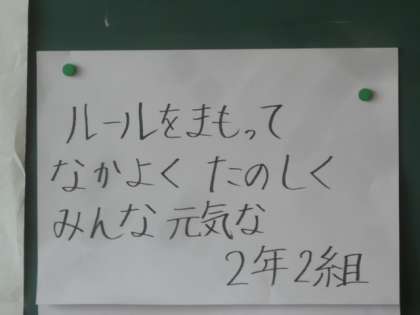 ルールをまもって
なかよく たのしく
みんな元気な
2年2組